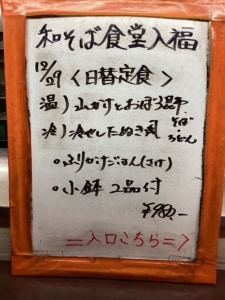 和そば食堂入福
12/29 〈日替定食〉
温）山かけとおぼろ昆布
冷）冷せしたぬき風 そば うどん
○ふりかけごはん(さけ)
○小鉢 2品付
¥980,-
＝入口こちら＝＞